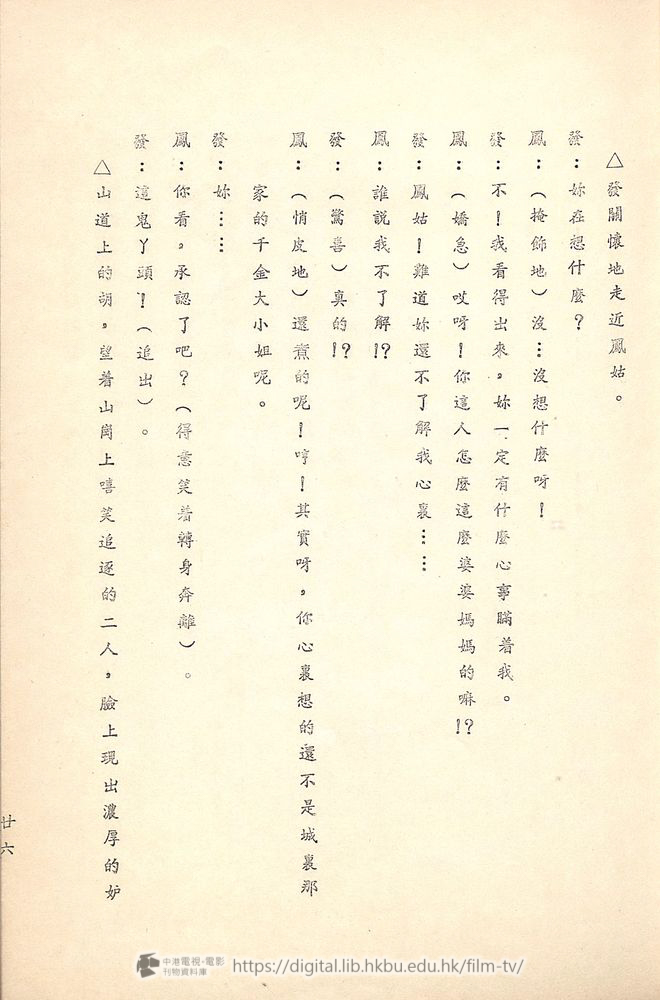 △發關懷地走近鳳姑。
發：妳在想什麼？
鳳：（掩飾地）沒…沒想什麼呀！
發：不！我看得出來，妳一定有什麼心事瞞着我。
鳳：（嬌急）哎呀！你這人怎麼這麼婆婆媽媽的嘛!?
發：鳳姑！難道妳還不了解我心裏……
鳳：誰説我不了解!?
發：（驚喜）真的!?
鳳：（悄皮地）還煮的呢！哼！其實呀，你心裏想的還不是城裏那
家的千金大小姐呢。
發：妳……
鳳：你看，承認了吧？（得意笑着轉身奔離）。
發：這鬼丫頭！（追出）。
△山道上的胡，望着山崗上嘻笑追逐的二人，臉上現出濃厚的妒
廿六
中港電視·電影
刊物資料庫
https://digital.lib.hkbu.edu.hk/film-tv/